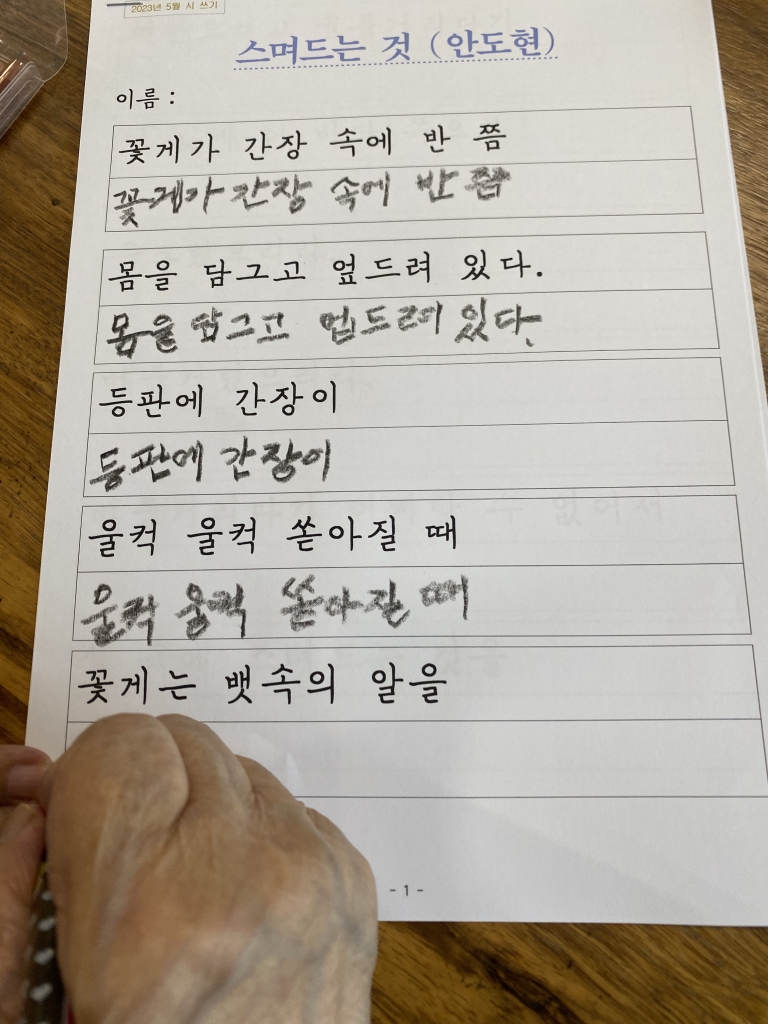 2023년 5월 시 쓰기
스며드는 것 (안도현)
이름 :
꽃게가 간장 속에 반 쯤
꽃게가 간장 속에 반 쯤
몸을 담그고 엎드려 있다.
몸을 담그고 업드려 있다.
등판에 간장이
등판에 간장이
울컥 울컥 쏟아질 때
울컥 울컥 쏟아질 때
꽃게는 뱃속의 알을
- 1 -